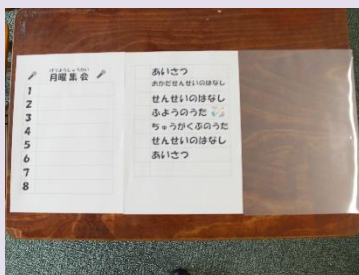 げつようしゅうかい
月曜集会
1
2
3
4
5
6
7
8
あいさつ
おかだせんせいのはなし
せんせいのはなし
ふようのうた
ちゅうがくぶのうた
せんせいのはなし
あいさつ